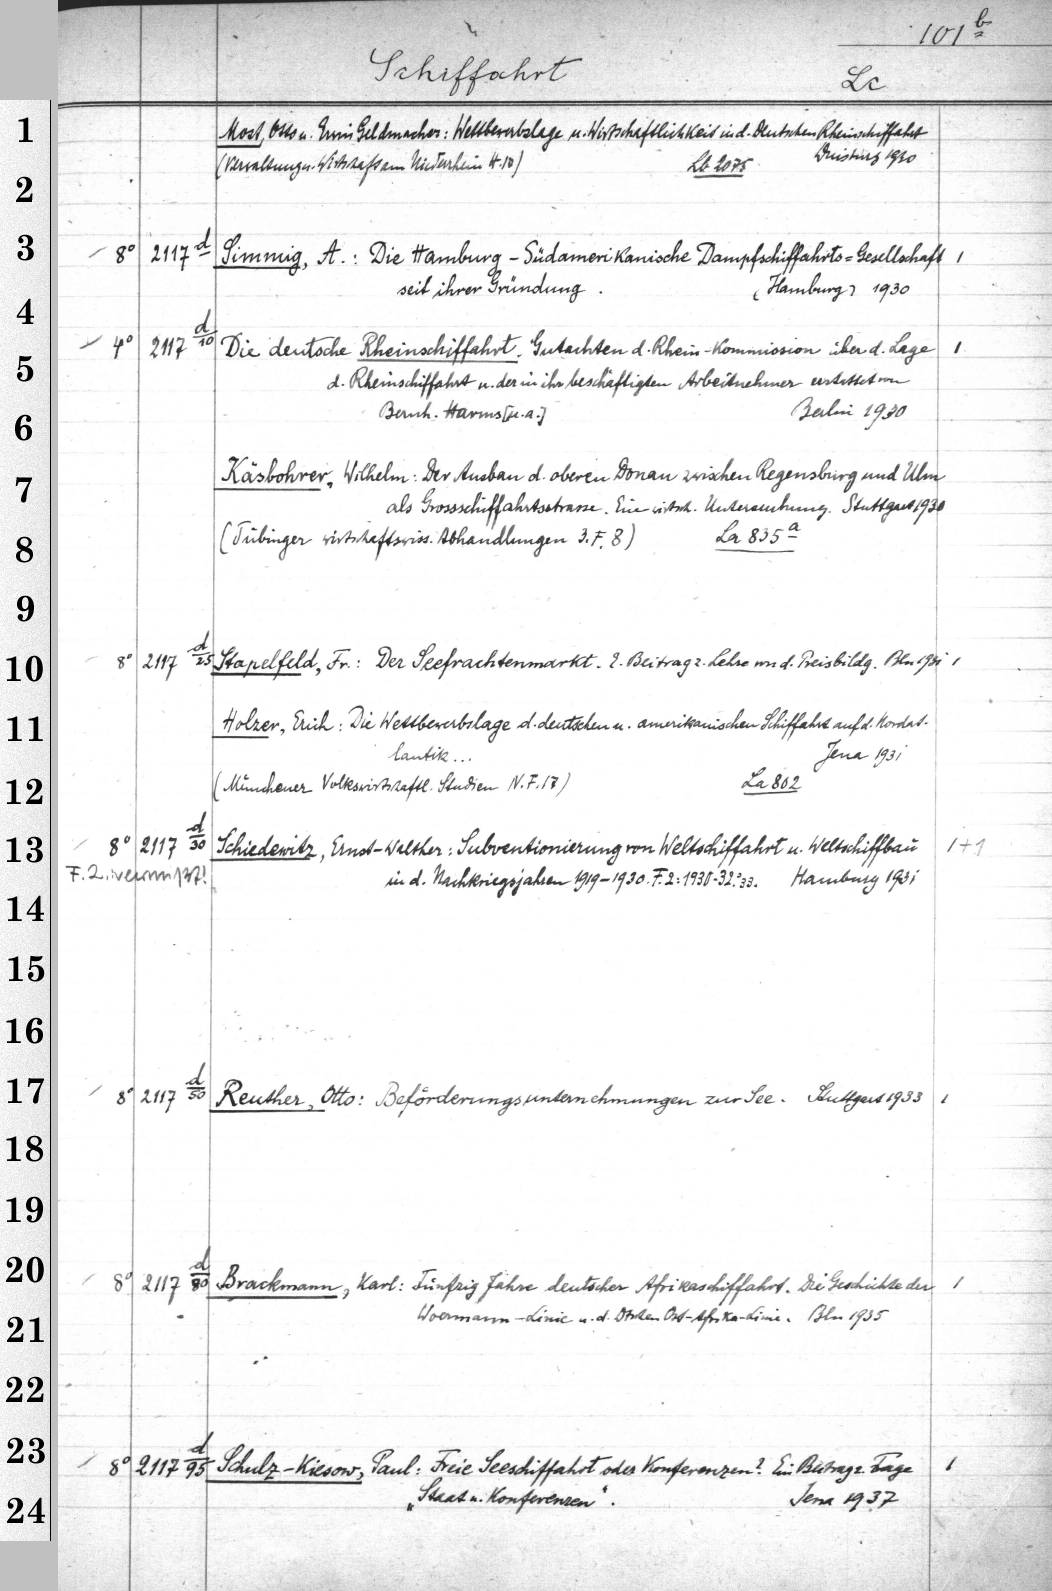 101 b
Schiffahrt Lc
1 Most, Otto u. Erwin Geldmacher: Wettbewerbslage u. Wirtschaftlichkeit in d. Deutschen Rheinschiffahrt
(Verwaltung u. Wirtschaft am Niederrhein H. 10) Lb 2075 Duisburg 1930
2
3 8° 2117 d Simmig, A.: Die Hamburg-Südamerikanische Dampfschiffahrts=Gesellschaft 1
4 seit ihrer Gründung. (Hamburg) 1930
5 4° 2117 d/10 Die deutsche Rheinschiffahrt. Gutachten d. Rhein-Kommission über d. Lage 1
d. Rheinschiffahrt u. der in ihr beschäftigten Arbeitnehmer erstattet von
6 Bernh. Harms [u. a.] Berlin 1930
7 Käsbohrer, Wilhelm: Der Ausbau d. oberen Donau zwischen Regensburg und Ulm
als Grossschiffahrtsstrasse. Eine wirtsch. Untersuchung. Stuttgart 1930
8 (Tübinger wirtschaftswiss. Abhandlungen 3. F, 8) La 835 a
9
10 8° 2117 d/25 Stapelfeld, Fr.: Der Seefrachtenmarkt. E. Beitrag z. Lehre von d. Preisbildg. Bln 1931 1
11 Holzer, Erich: Die Wettbewerbslage d. deutschen u. amerikanischen Schiffahrt auf d. Nordat-
lantik... Jena 1931
12 (Münchener Volkswirtschaftl. Studien N. F. 17) La 802
13 8° 2117 d/30 Schiedewitz, Ernst-Walther: Subventionierung von Weltschiffahrt u. Weltschiffbau 1+1
F. 2. in d. Nachkriegsjahren 1919-1930. F. 2: 1930-32. '33. Hamburg 1931
14
15
16
17 8° 2117 d/50 Reuther, Otto: Beförderungsunternehmungen zur See. Stuttgart 1933 1
18
19
20 8° 2117 d/80 Brackmann, Karl: Fünfzig Jahre deutscher Afrikaschiffahrt. Die Geschichte der 1
21 Woermann-Linie u. d. Dtschen Ost-Afrika-Linie. Bln 1935
22
23 8° 2117 d/95 Schulz-Kiesow, Paul: Freie Seeschiffahrt oder Konferenzen? Ein Beitrag z. Frage 1
24 „Staat u. Konferenzen". Jena 1937